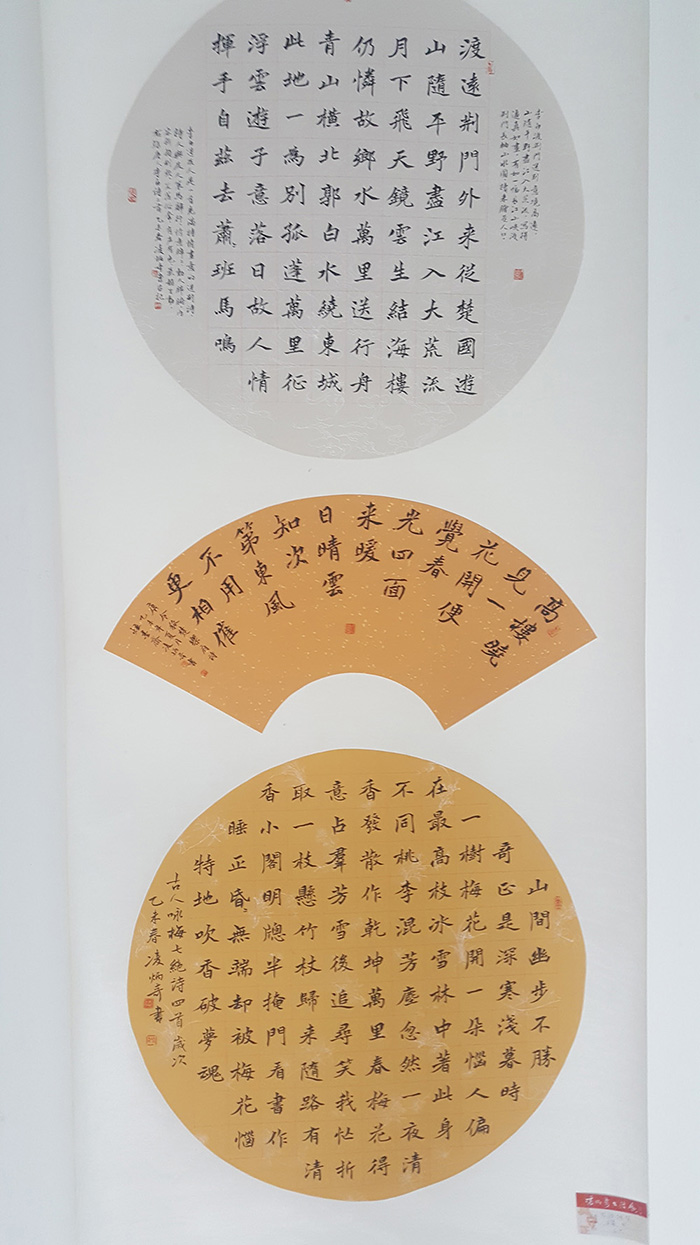 渡遠荊門外来從楚國遊
山隨平野盡江入大荒流
月下飛天鏡雲生結海樓
仍憐故鄉水萬里送行舟
青山橫北郭白水繞東城
此地一為別孤蓬萬里征
浮雲遊子意落日故人情
揮手自茲去蕭班馬鳴
高樓曉
見一
花開便
覺春
光四面
来暖
日晴雲
知次
第東風
不用
更相催
山間幽步不勝
奇正是深寒淺暮時
一樹梅花開一朵惱人偏
在最高枝冰雪林中著此身
不同桃李混芳塵忽然一夜清
香發散作乾坤萬里春梅花得
意占羣芳雪後追尋笑我忙折
取一枝懸竹杖歸来隨路有清
香小閣明牕半掩門看書作
睡正昏無端却被梅花惱
特地吹香破夢魂
古人咏梅七絕詩四首歲次
乙未春凌炳奇書